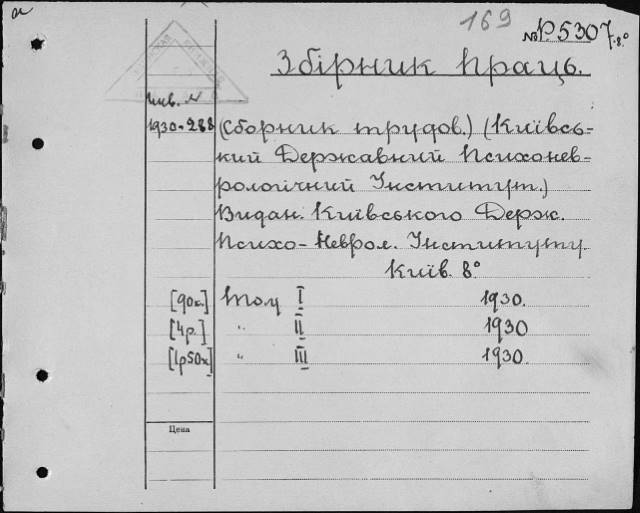 169 №P.5307.8°
Збірник праць.
Инв. №
1930-288 (Сборник трудов.) (Київсь-
кий Державний Психонев-
рологічний Інститут.)
Видан. Київського Держ.
Психо-Неврол. Інституту
Київ. 8°
[90к.] Том I 1930.
[4р.] " II 1930
[1р50к] " III 1930.
Цена